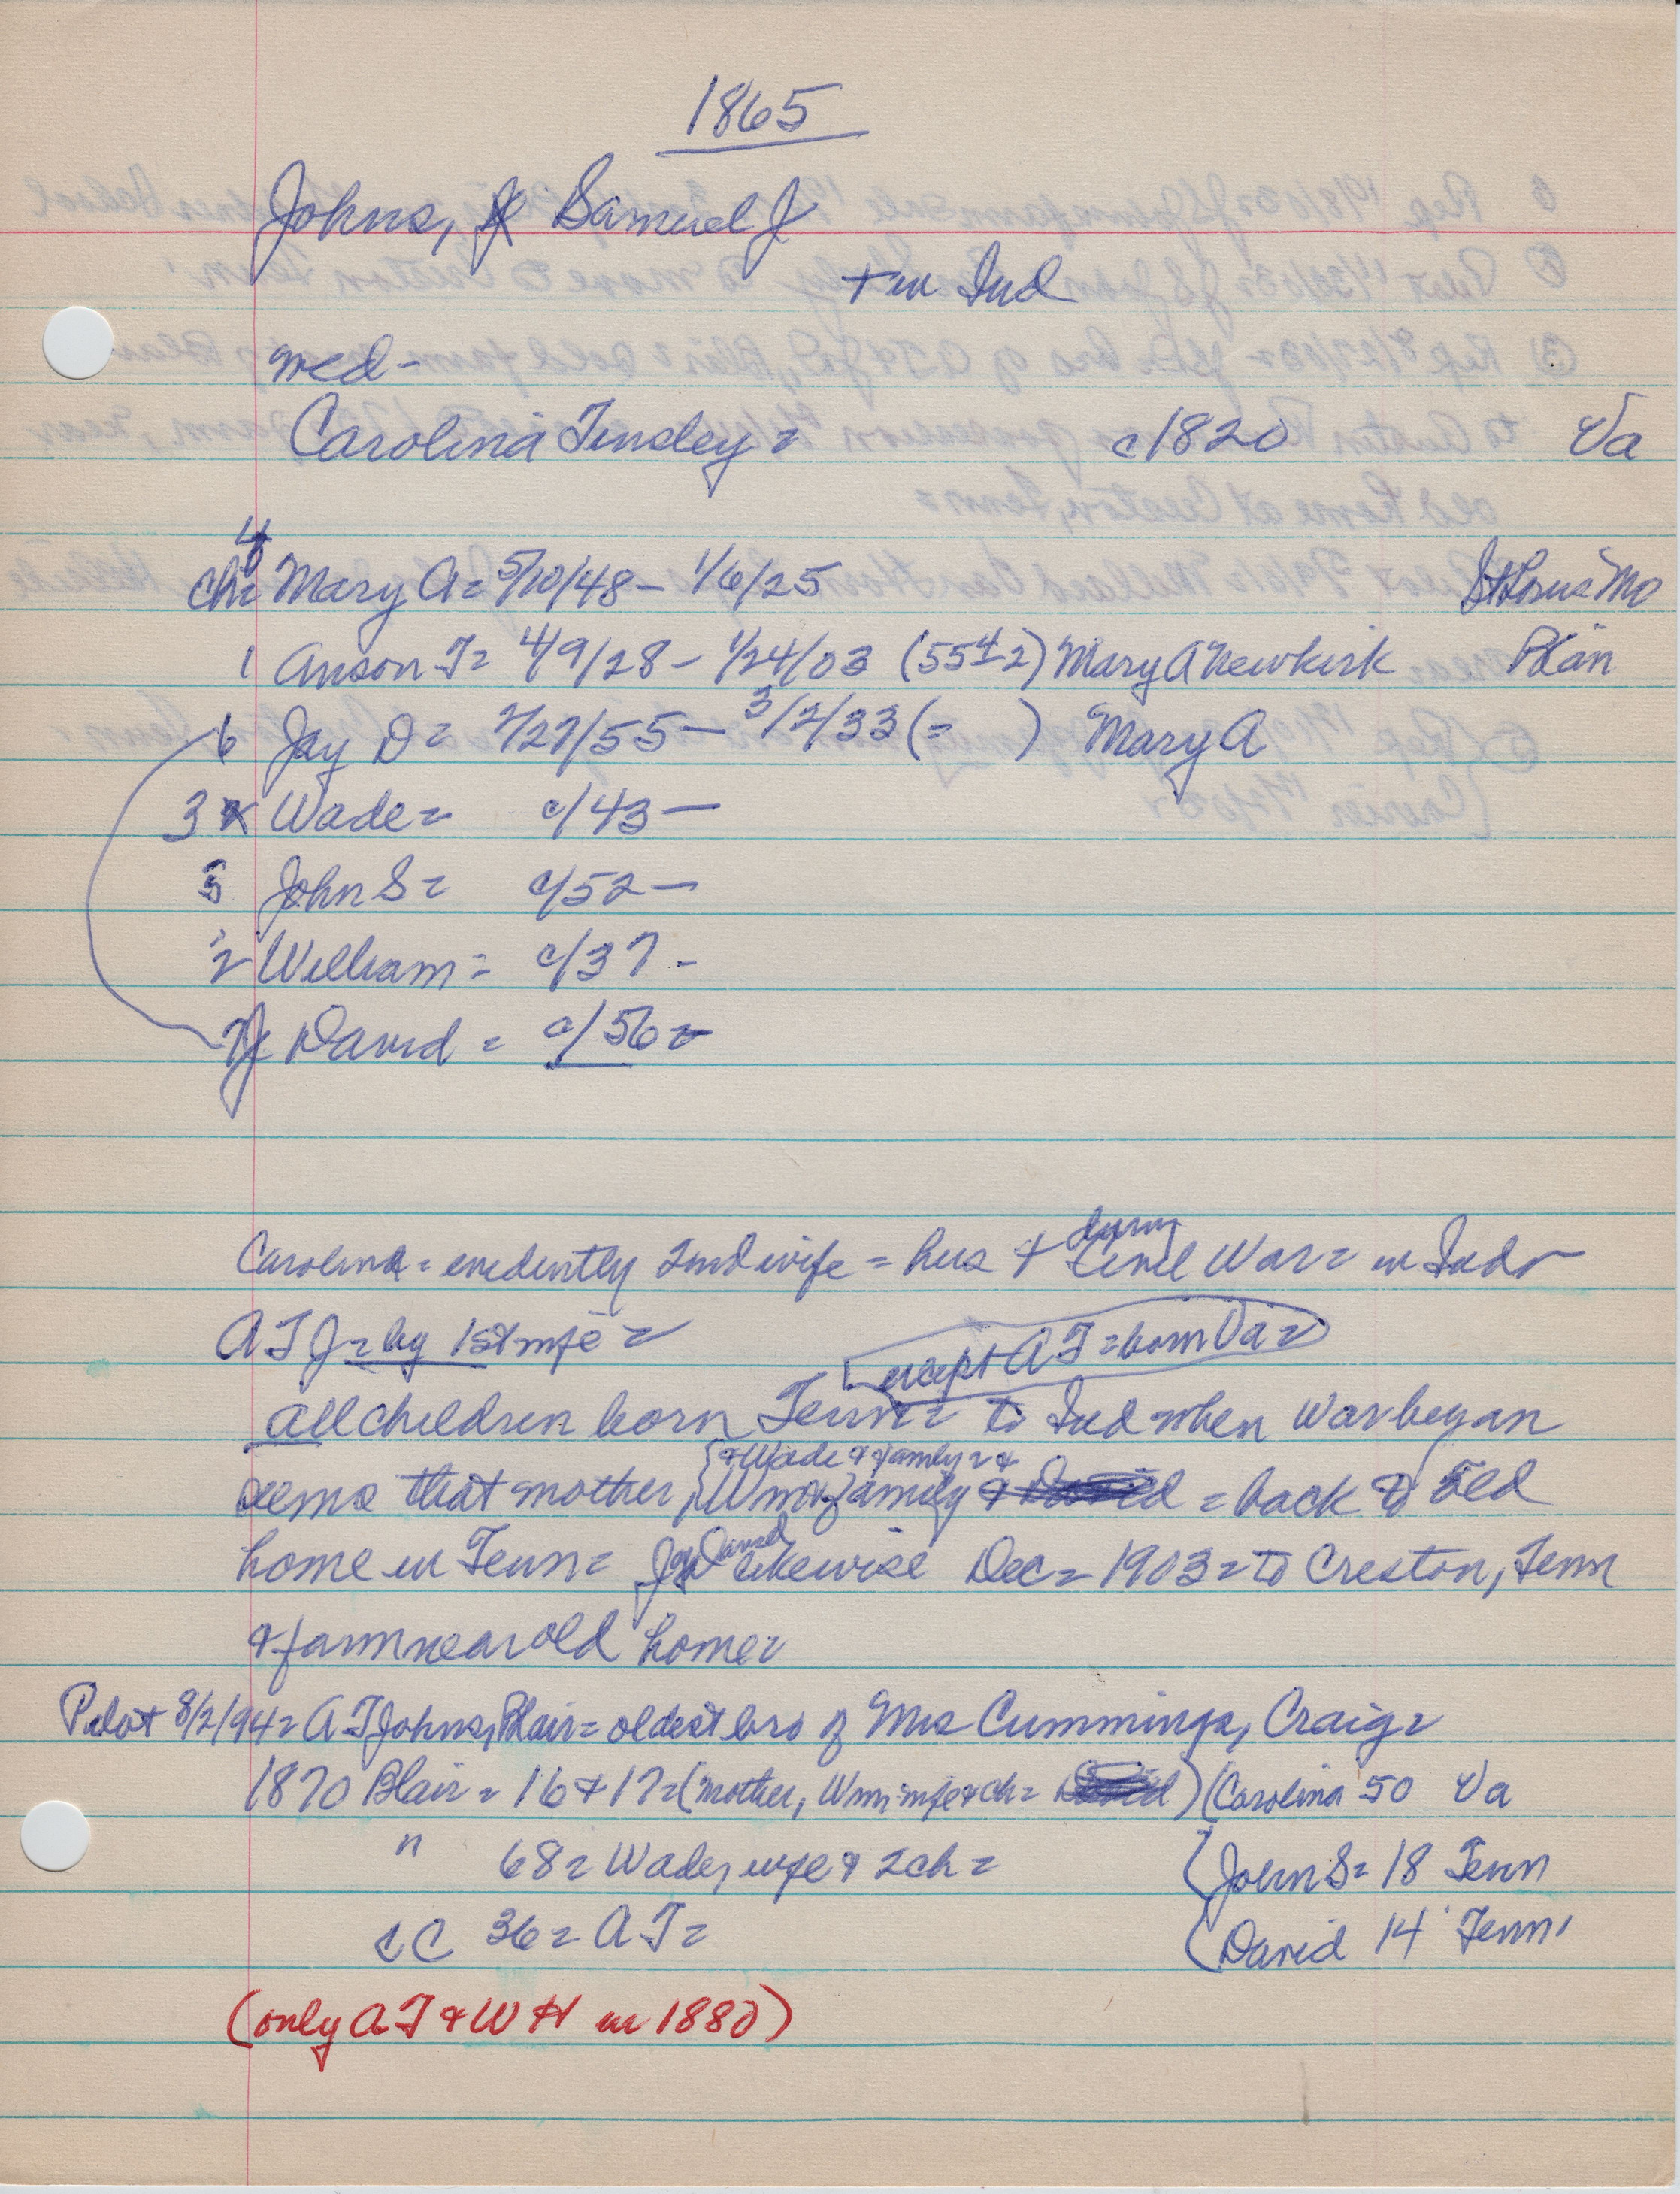 1865
Johns, Samuel J
+ in Ind
med -
Carolina Tinsley = c1820 Va
4
ch= Mary A = 5/10/48 - 1/6/25 St Louis Mo
1 Anson T = 4/9/28 - 1/24/03 (55 ± 2) Mary A Newkirk Blair
6 Jay D = 7/27/55 - 3/2/33 (= ) Mary A
3 Wade = c/43 -
5 John S = c/52 -
2 William = c/37 -
7 David = c/56 =
during
Carolina = evidently 2nd wife = hus + Civil War = in Ind =
A T J = by 1st wife =
except A T = born Va =
all children born Tenn = to Ind when War began
{ & Wade & family = &
seems that mother, { Wm & family & = back to old
David
home in Tenn = Jay D likewise Dec = 1903 = to Creston, Tenn
& farm near old home =
Pilot 8/2/94 = A T Johns, Blair = oldest bro of Mrs Cummings, Craig =
1870 Blair = 16 & 17 = (mother, Wm wife & ch = ) (Carolina 50 Va
" 68 = Wade, wife & 2 ch = { John S = 18 Tenn
36 = A T = { David 14 Tenn
(only A T & W H in 1880)